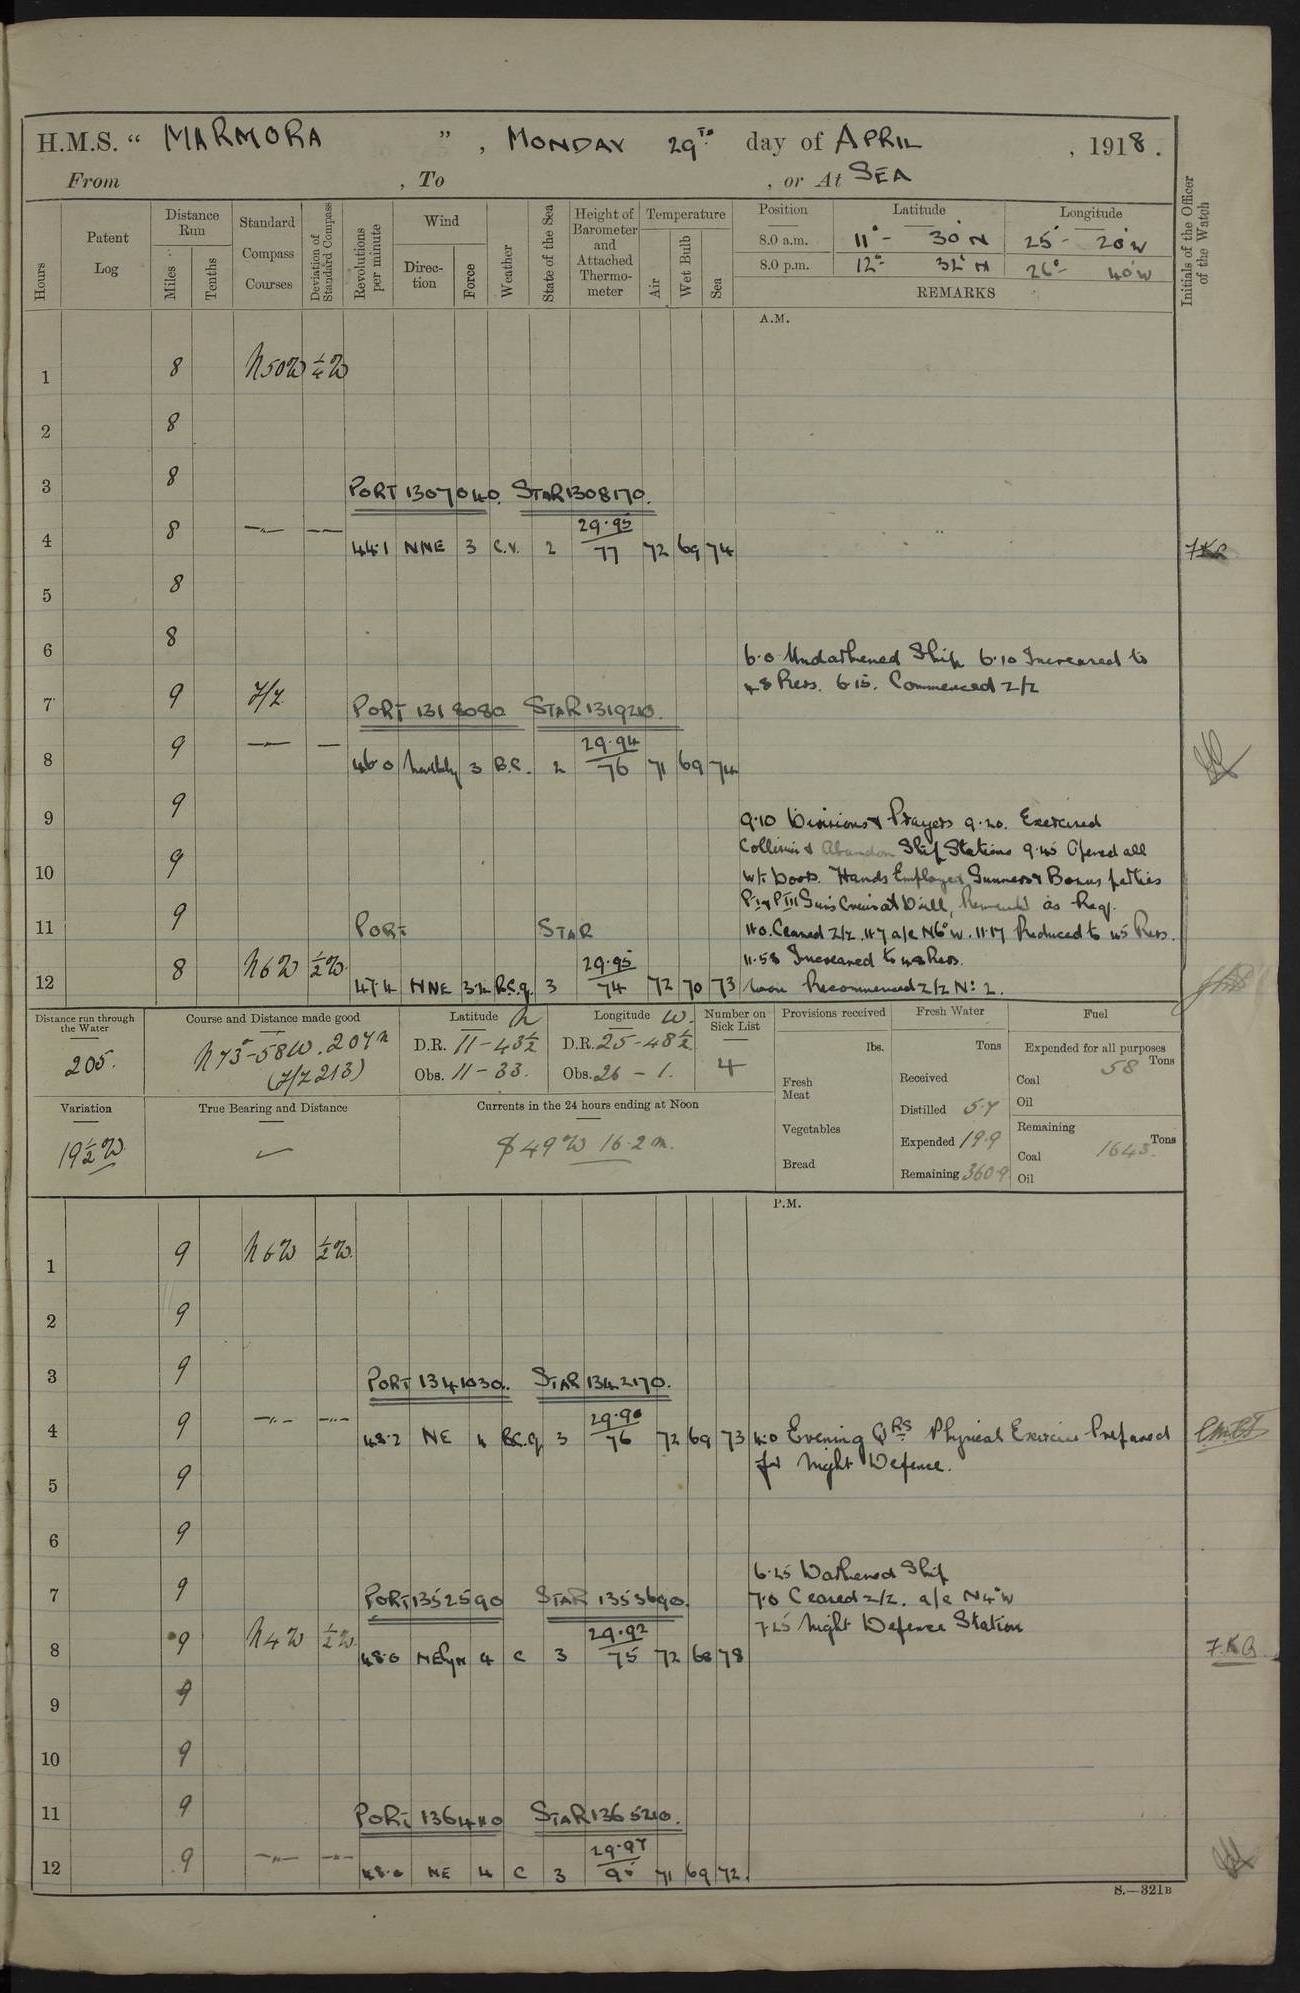 H.M.S. “ MARMORA ” , MONDAY 29TH day of APRIL , 1918 .
From , To , or At SEA
Hours
Patent Log
Distance Run
Miles
Tenths
Standard Compass Courses
Deviation of Standard Compass
Revolutions per minute
Wind
Direction
Force
Weather
State of the Sea
Height of Barometer and Attached Thermometer
Temperature
Air
Wet Bulb
Sea
Position Latitude Longitude
8.0 a.m. 11° - 30' N 25° - 20' W
8.0 p.m. 12° - 32' N 26° - 40' W
REMARKS
Initials of the Officer of the Watch
A.M.
1 8 N50W ¼W
2 8
3 8
PORT 1307040. STAR 1308170.
4 8 —„— —„— 44.1 NNE 3 C.V. 2 29.95/77 72 69 74
5 8
6 8
6.0 Undarkened Ship 6.10 Increased to
48 Revs. 6.15. Commenced Z/Z
7 9 Z/Z
PORT 1318080 STAR 1319210.
8 9 — — 46.0 Northly 3 B.C. 2 29.94/76 71 69 74
9 9
9.10 Divisions & Prayers 9.20. Exercised
Collision & Abandon Ship Stations 9.45 Opened all
10 9
W/T Doors. Hands Employed, Gunners & Bosuns parties
PI & PIII Guns Crews at Drill, as Req.
11 9
PORT STAR
11.0. Ceased Z/Z. 11.7 a/c N6°W. 11.17 Reduced to 45 Revs.
11.58 Increased to 48 Revs.
12 8 N6W ½W 47.4 NNE 3.4 B.C.q. 3 29.95/74 72 70 73 Noon Recommenced Z/Z No: 2.
Distance run through the Water
205.
Course and Distance made good
N73°-58W. 207m
(Z/Z 213)
Latitude N
D.R. 11 - 43½
Obs. 11 - 33.
Longitude W.
D.R. 25 - 48½
Obs. 26 - 1.
Number on Sick List
4
Provisions received
lbs.
Fresh Meat
Vegetables
Bread
Fresh Water
Tons
Received
Distilled 5.7
Expended 19.9
Remaining 360.9
Fuel
Expended for all purposes
Coal 58 Tons
Oil
Remaining
Coal 1643. Tons
Oil
Variation
19½W
True Bearing and Distance
Currents in the 24 hours ending at Noon
S 49 W 16.2 m.
P.M.
1 9 N6W ½W.
2 9
3 9
PORT 1341030. STAR 1342170.
4 9 —„— —„— 48.2 NE 4 B.C.q 3 29.90/76 72 69 73 4.0 Evening QRS Physical Exercise Prepared
for Night Defence.
5 9
6 9
6.25 Darkened Ship
7 9
PORT 1352590 STAR 1353690.
7.0 Ceased Z/Z. a/c N4°W
7.25 Night Defence Station
8 9 N4W ½W 48.0 NEbyN 4 C 3 29.92/75 72 68 78 7.K.R.
9 9
10 9
11 9
PORT 1364110 STAR 1365210.
12 9 —„— —„— 48.0 NE 4 C 3 29.97/95 71 69 72.
S.—321B